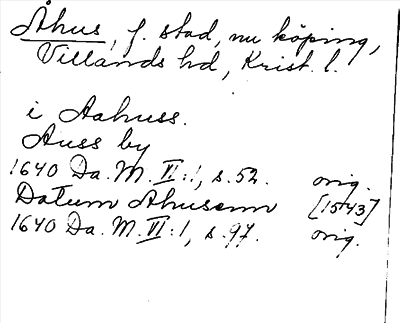 Åhus, f. stad, nu köping,
Villands hd, Krist. l.
i Aahuss.
Auss by
1640 Da. M. II:1, s. 52. orig.
Datum Ahusenn [1543]
1640 Da. M. VI:1, s. 97. orig.